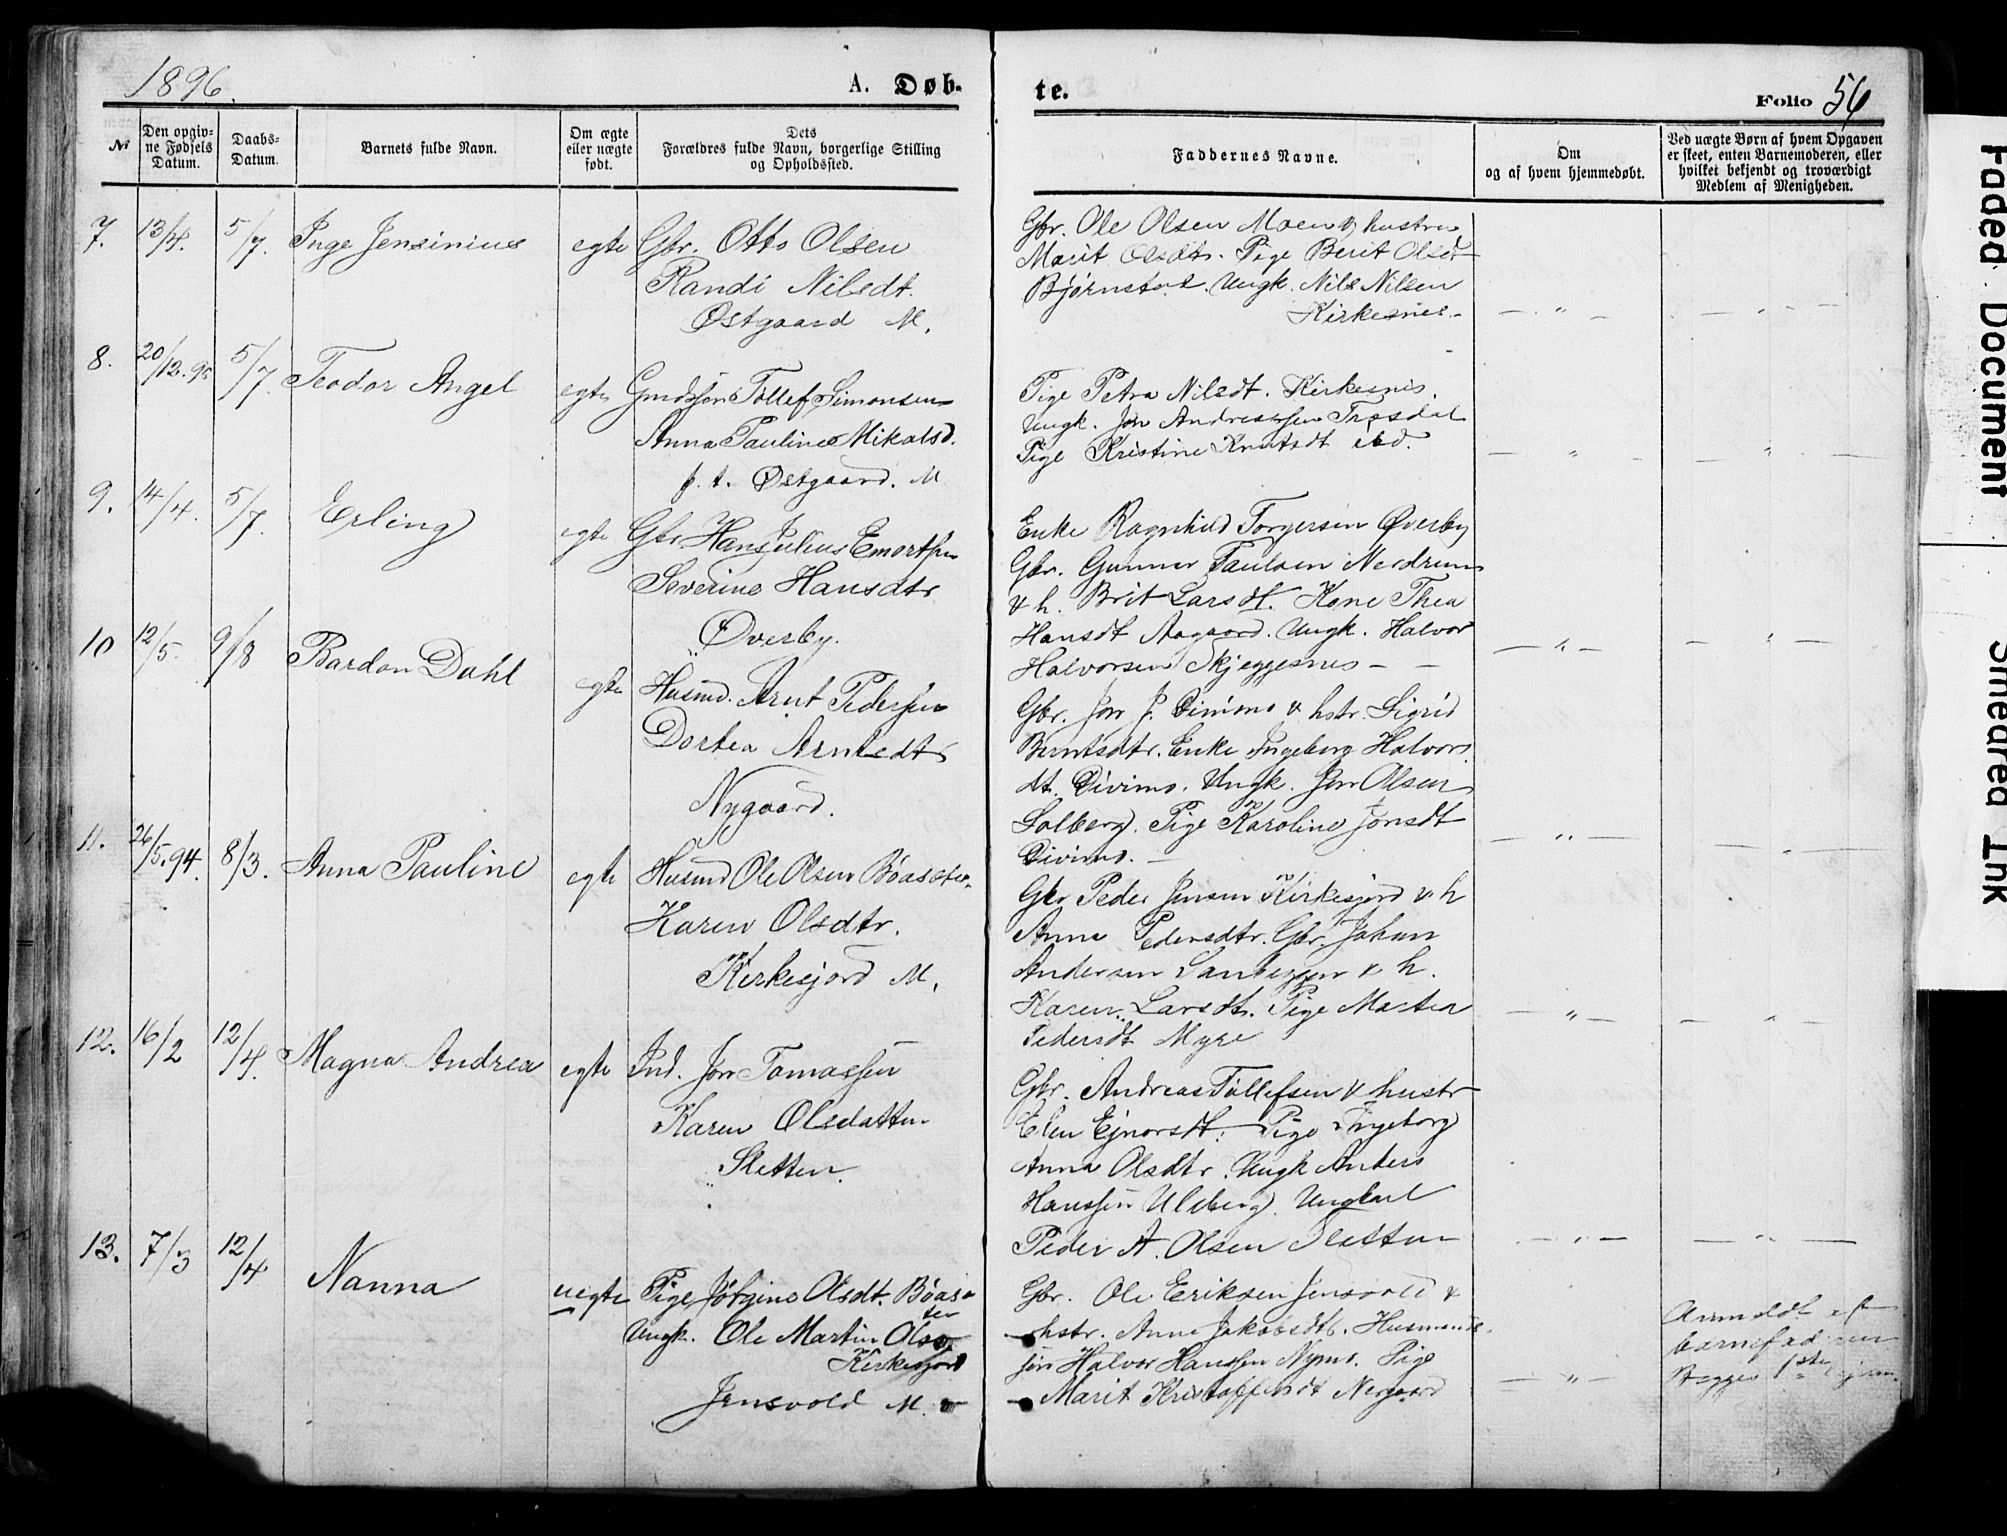 1896.
A. Døb-
te.
Folio 56
№
Den opgiv-
ne Fødsels
Datum.
Daabs-
Datum.
Barnets fulde Navn.
Om ægte
eller uægte
født.
Dets
Forældres fulde Navn, borgerlige Stilling
og Opholdssted.
Faddernes Navne.
Om
og af hvem hjemmedøbt.
Ved uægte Børn af hvem Opgaven
er skeet, enten Barnemoderen, eller
hvilket bekjendt og troværdigt
Medlem af Menigheden.
7. 13/4. 5/7. Inge Jensinius egte Gbr. Otto Olsen
Randi Nilsdt.
Østgaard M.
Gbr. Ole Olsen Moen & hustru
Marit Olsdtr. Pige Berit Olsdt
Bjørnstad. Ungk. Nils Nilsen
Kirkesnes.
8. 20/12.95 5/7. Teodor Angel egte Gmdssøn Tollef Simonsen
Anna Pauline Mikalsd.
p. t. Østgaard. M
Pige Petra Nilsdt. Kirkesnes.
Ungk. Jon Andreassen Træsdal
Pige Kristine Knutsdt ibd.
9. 14/4. 5/7. Erling egte Gbr. Hans Julius Emortsen
Severine Hansdtr
Øverby.
Enke Ragnhild Torgersen Øverby
Gbr. Gunner Paulsen Nerdrum
& h. Brit Larsdt. Kone Thea
Hansdt Aagaard. Ungk. Halvor
Halvorsen Skjeggesnes
10 12/5. 9/8 Bardon Dahl egte Husmd. Arnt Pedersen
Dortea Arntsdtr
Nygaard.
Gbr. Jon J. Divimo & hstr. Sigrid
Berntsdtr. Enke Ingeborg Halvors
dt. Divimo. Ungk. Jon Olsen
Solberg. Pige Karoline Jonsdt
Divimo.
11. 26/5.94. 8/3. Anna Pauline egte Husmd Ole Olsen Bøasæter.
Karen Olsdtr.
Kirkesjord M.
Gbr Peder Jensen Kirkesjord & h
Anne Pedersdtr. Gbr. Johan
Andersen & h.
Karen Larsdt. Pige Martea
Pedersdt Myre
12. 16/2 12/4. Magna Andrea egte Ind. Jon Tomassen
Karen Olsdatter
Sletten.
Gbr. Andreas Tollefsen & hustr
Elen Ejnarsdt. Pige Ingeborg
Anna Olsdtr. Ungk Anders
Hanssen Ulvberg. Ungkarl
Peder A. Olsen Sletten
13. 7/3 12/4 Nanna uegte Pige Jørgine Olsdt. Bøasæ-
ter
Ungk. Ole Martin Olsen
Kirkesjord
Jensvold M.
Gbr. Ole Eriksen Jensvold &
hstr. Anne Jakobsdt. Husmands
søn Halvor Hanssen Nymo. Pige
Marit Kristoffersdt Nergaard
Anmeldt af
barnefaderen
Begges 1ste
Faded Document
Smeared Ink